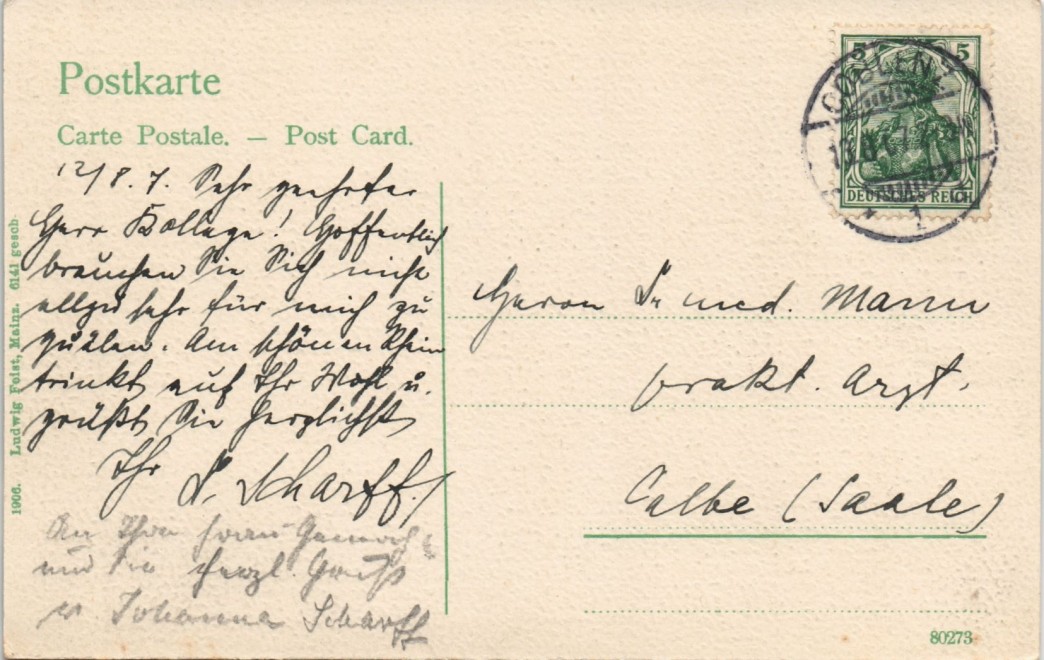 Postkarte
Carte Postale. — Post Card.
12/8. 7. Sehr geehrter
Herr Kollege! Hoffentlich
brauchen Sie Sich nicht
allzu sehr für mich zu
quälen. Am schönen Rhein
trinkt auf Ihr Wohl u.
grüßt Sie herzlichst
Ihr Dr. Scharff.
An Ihre Frau
und Sie herzl. Gruß
v Johanna Scharff
5 5
COBLENZ
DEUTSCHES REICH
1
Herrn Dr med. Mann
prakt. Arzt.
Calbe (Saale)
80273
1906. Ludwig Feist, Mainz. 6141 gesch.